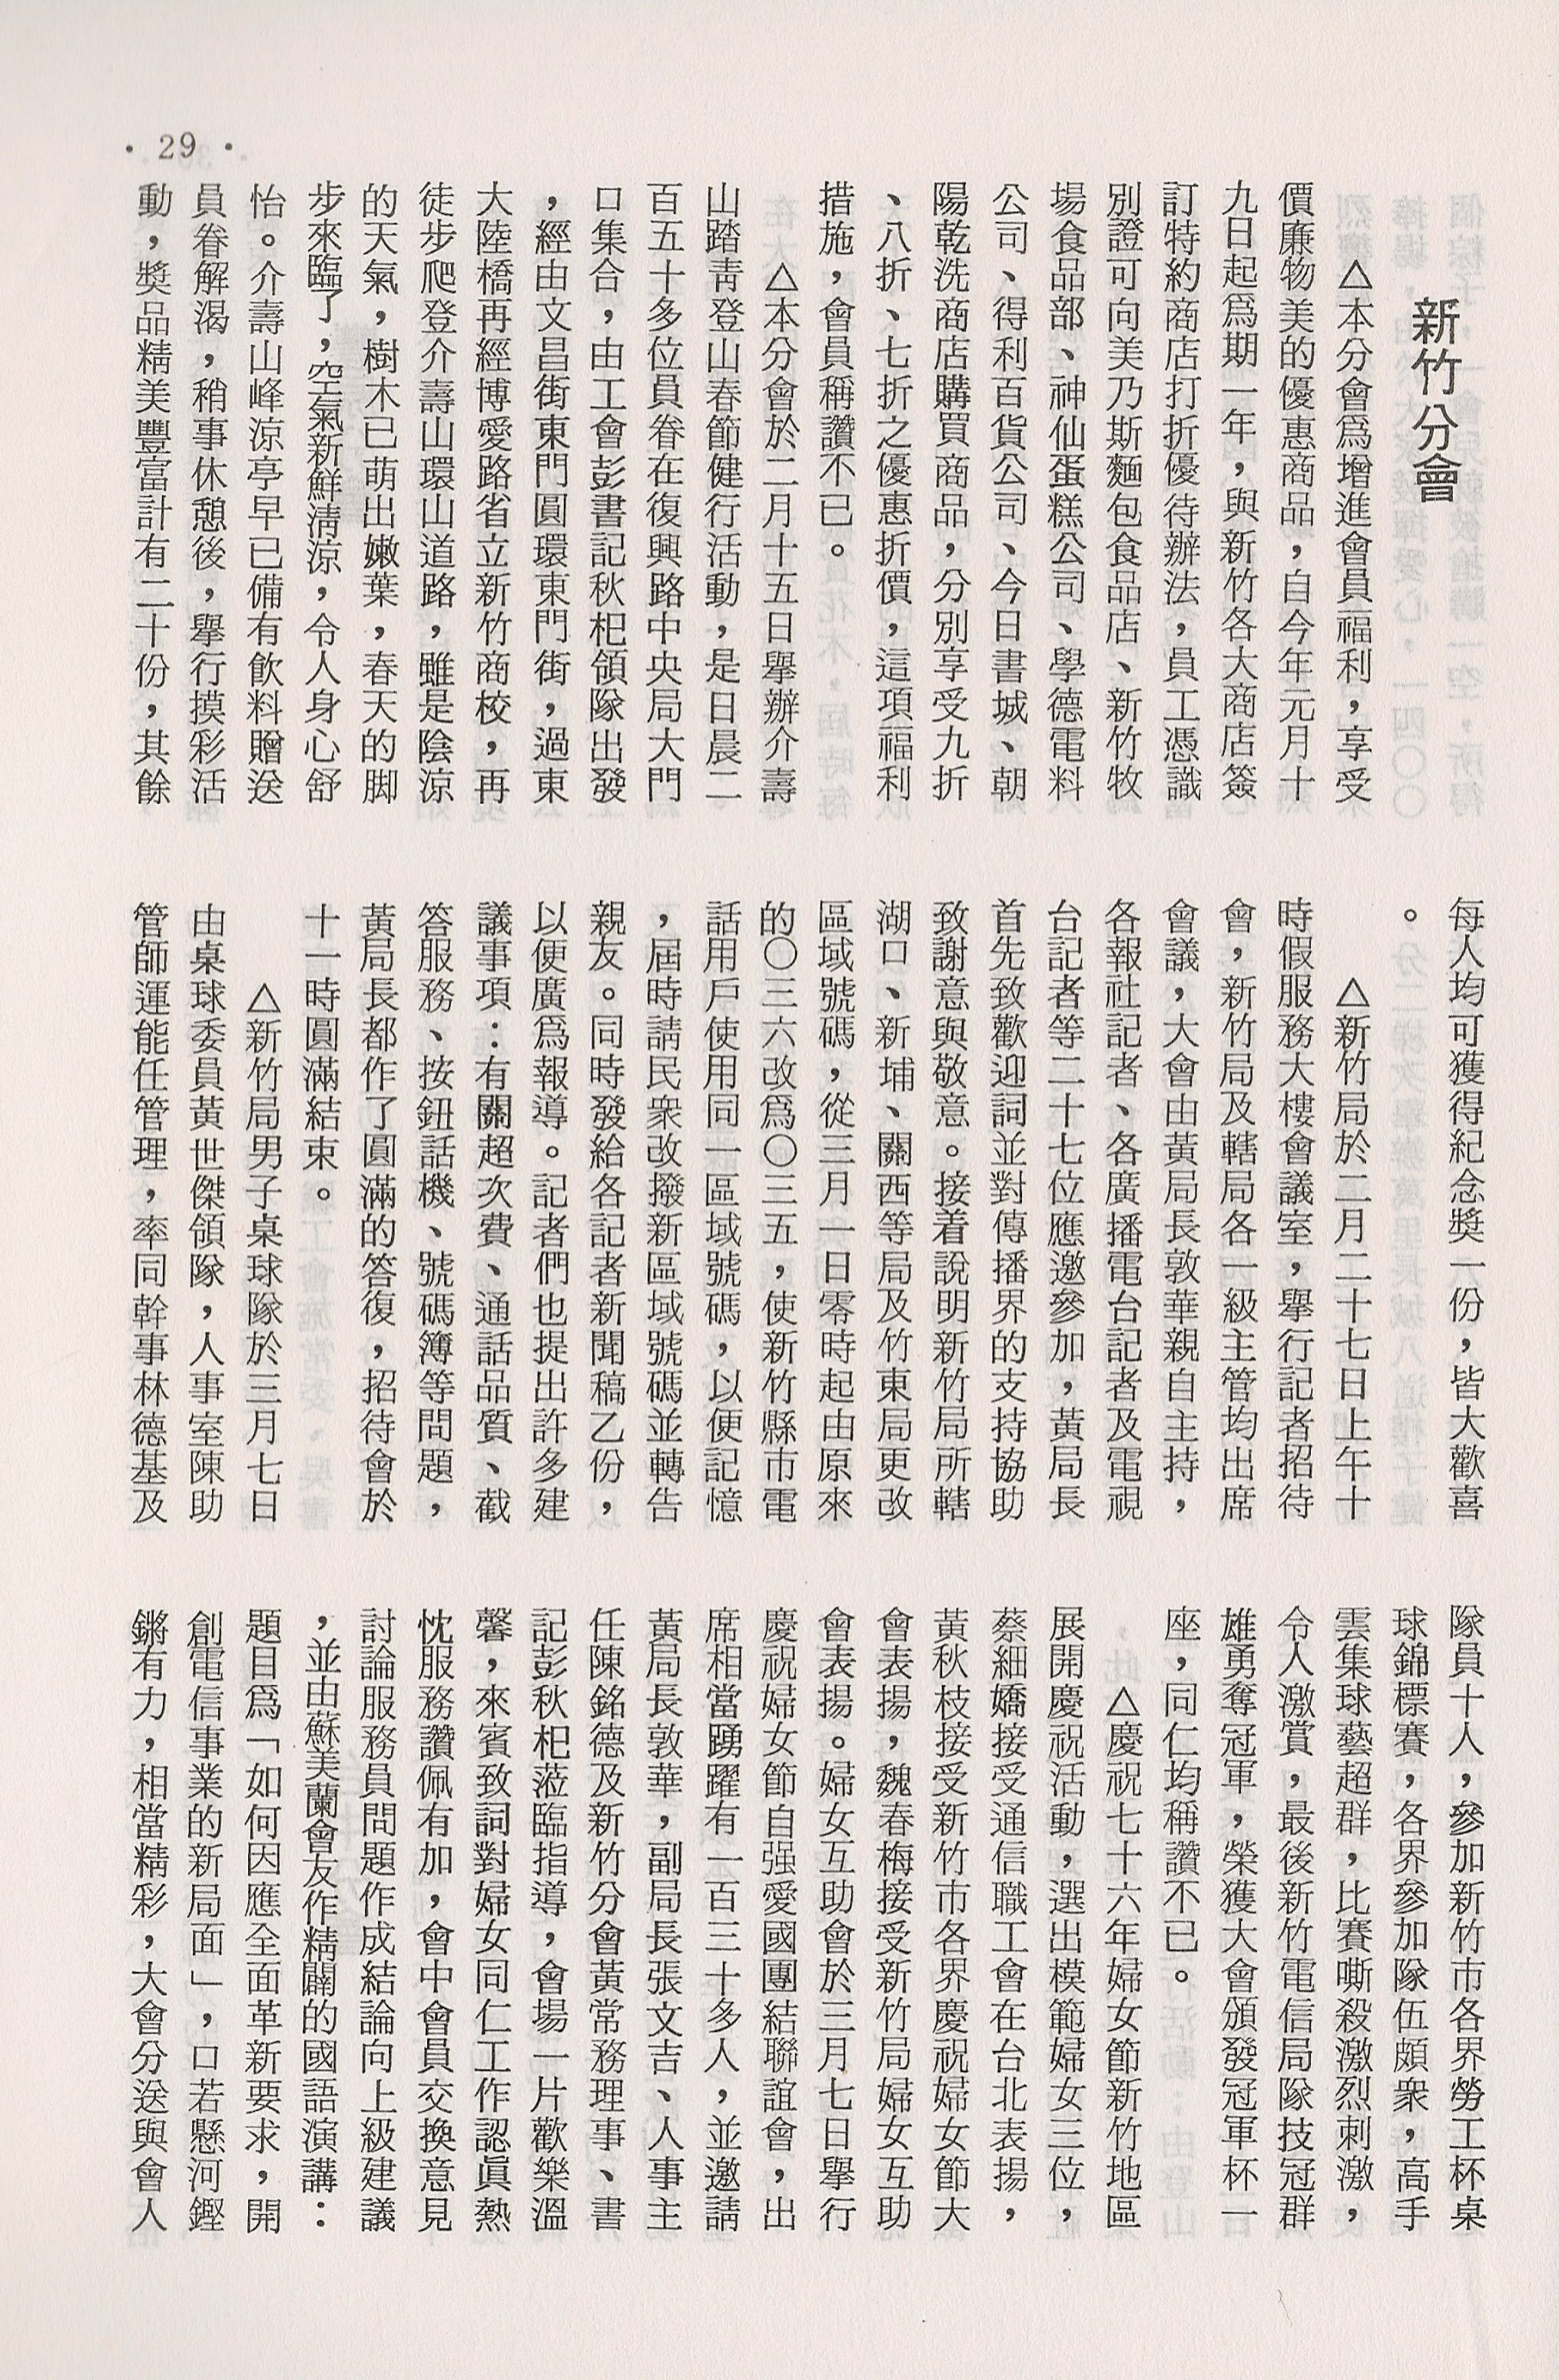 新竹分會
△本分會爲增進會員福利，享受
價廉物美的優惠商品，自今年元月十
九日起爲期一年，與新竹各大商店簽
訂特約商店打折優待辦法，員工憑識
別證可向美乃斯麵包食品店、新竹牧
場食品部、神仙蛋糕公司、學德電料
公司、得利百貨公司、今日書城、朝
陽乾洗商店購買商品，分別享受九折
、八折、七折之優惠折價，這項福利
措施，會員稱讚不已。
△本分會於二月十五日舉辦介壽
山踏靑登山春節健行活動，是日晨二
百五十多位員眷在復興路中央局大門
口集合，由工會彭書記秋杞領隊出發
，經由文昌街東門圓環東門街，過東
大陸橋再經博愛路省立新竹商校，再
徒步爬登介壽山環山道路，雖是陰涼
的天氣，樹木已萌出嫩葉，春天的脚
步來臨了，空氣新鮮淸涼，令人身心舒
怡。介壽山峰涼亭早已備有飲料贈送
員眷解渴，稍事休憩後，舉行摸彩活
動，獎品精美豐富計有二十份，其餘
每人均可獲得紀念獎一份，皆大歡喜
。
△新竹局於二月二十七日上午十
時假服務大樓會議室，舉行記者招待
會，新竹局及轄局各一級主管均出席
會議，大會由黃局長敦華親自主持，
各報社記者、各廣播電台記者及電視
台記者等二十七位應邀參加，黃局長
首先致歡迎詞並對傳播界的支持協助
致謝意與敬意。接着說明新竹局所轄
湖口、新埔、關西等局及竹東局更改
區域號碼，從三月一日零時起由原來
的〇三六改爲〇三五，使新竹縣市電
話用戶使用同一區域號碼，以便記憶
，屆時請民衆改撥新區域號碼並轉告
親友。同時發給各記者新聞稿乙份，
以便廣爲報導。記者們也提出許多建
議事項：有關超次費、通話品質、截
答服務、按鈕話機、號碼簿等問題，
黃局長都作了圓滿的答復，招待會於
十一時圓滿結束。
△新竹局男子桌球隊於三月七日
由桌球委員黃世傑領隊，人事室陳助
管師運能任管理，率同幹事林德基及
隊員十人，參加新竹市各界勞工杯桌
球錦標賽，各界參加隊伍頗衆，高手
雲集球藝超群，比賽嘶殺激烈刺激，
令人激賞，最後新竹電信局隊技冠群
雄勇奪冠軍，榮獲大會頒發冠軍杯一
座，同仁均稱讚不已。
△慶祝七十六年婦女節新竹地區
展開慶祝活動，選出模範婦女三位，
蔡細嬌接受通信職工會在台北表揚，
黃秋枝接受新竹市各界慶祝婦女節大
會表揚，魏春梅接受新竹局婦女互助
會表揚。婦女互助會於三月七日舉行
慶祝婦女節自强愛國團結聯誼會，出
席相當踴躍有一百三十多人，並邀請
黃局長敦華，副局長張文吉、人事主
任陳銘德及新竹分會黃常務理事、書
記彭秋杞蒞臨指導，會場一片歡樂溫
馨，來賓致詞對婦女同仁工作認眞熱
忱服務讚佩有加，會中會員交換意見
討論服務員問題作成結論向上級建議
，並由蘇美蘭會友作精闢的國語演講：
題目爲「如何因應全面革新要求，開
創電信事業的新局面」，口若懸河鏗
鏘有力，相當精彩，大會分送與會人
・29・